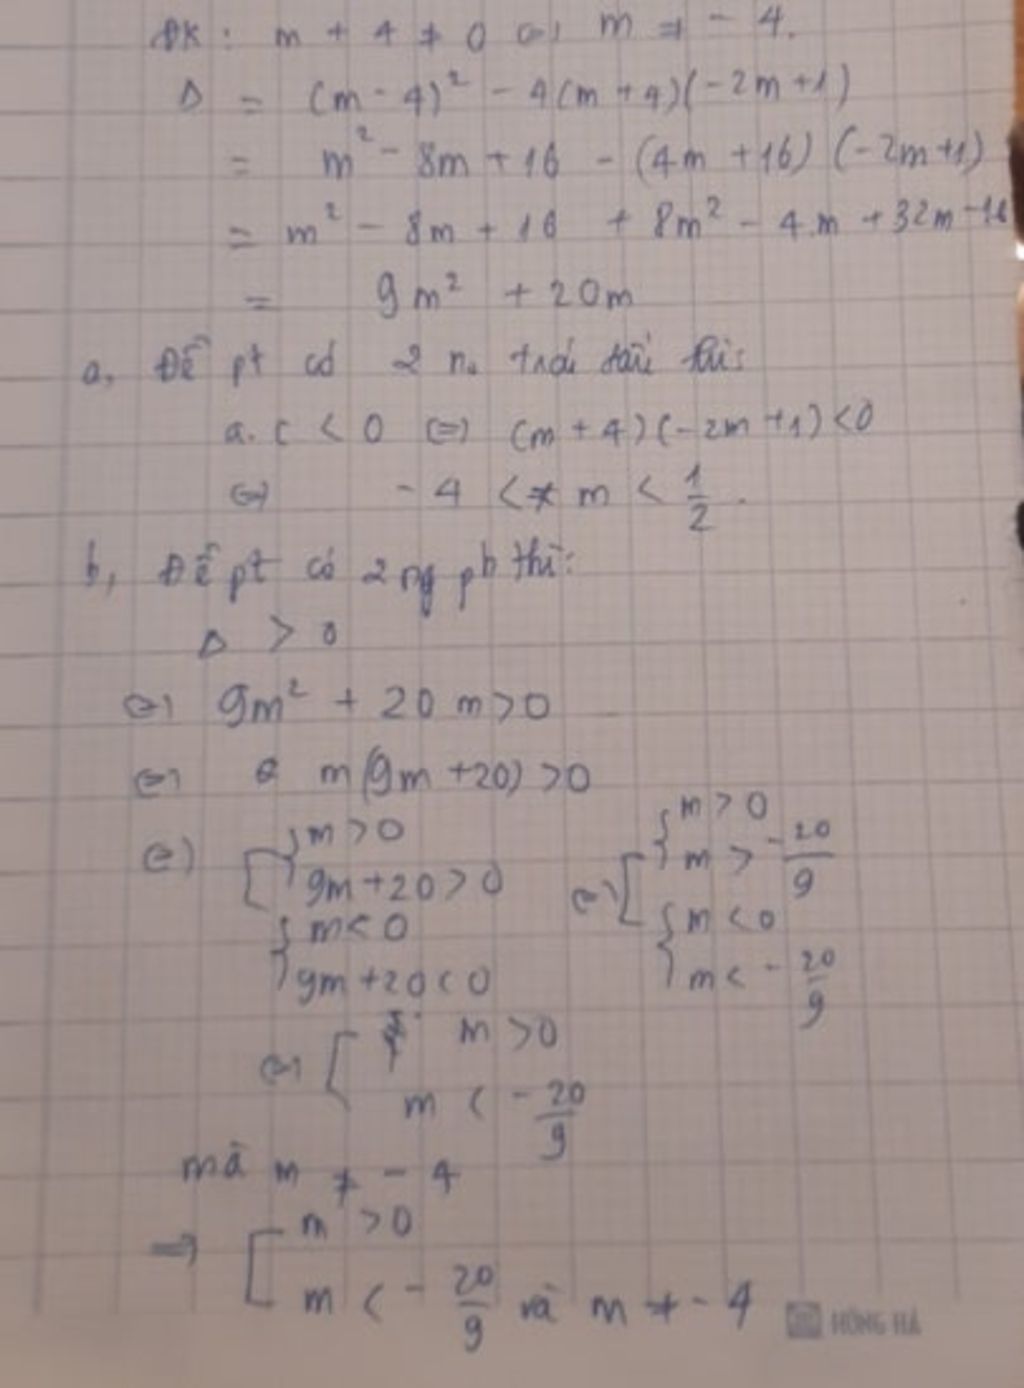 ĐK: m + 4 ≠ 0 ⇔ m ≠ - 4.
Δ = (m - 4)² - 4(m + 4)(-2m + 1)
= m² - 8m + 16 - (4m + 16)(-2m + 1)
= m² - 8m + 16 + 8m² - 4m + 32m - 16
= 9m² + 20m
a, Để pt có 2 n. trái dấu thì:
a.c < 0 ⇔ (m + 4)(-2m + 1) < 0
⇔ - 4 < m < 1/2.
b, Để pt có 2 ng pb thì:
Δ > 0
⇔ 9m² + 20m > 0
⇔ m(9m + 20) > 0
⇔ [ { m > 0
9m + 20 > 0
{ m < 0
9m + 20 < 0
⇔ [ { m > 0
m > -20/9
{ m < 0
m < -20/9
⇔ [ m > 0
m < -20/9
mà m ≠ - 4
⇒ [ m > 0
m < -20/9 và m ≠ - 4
HỒNG HÀ